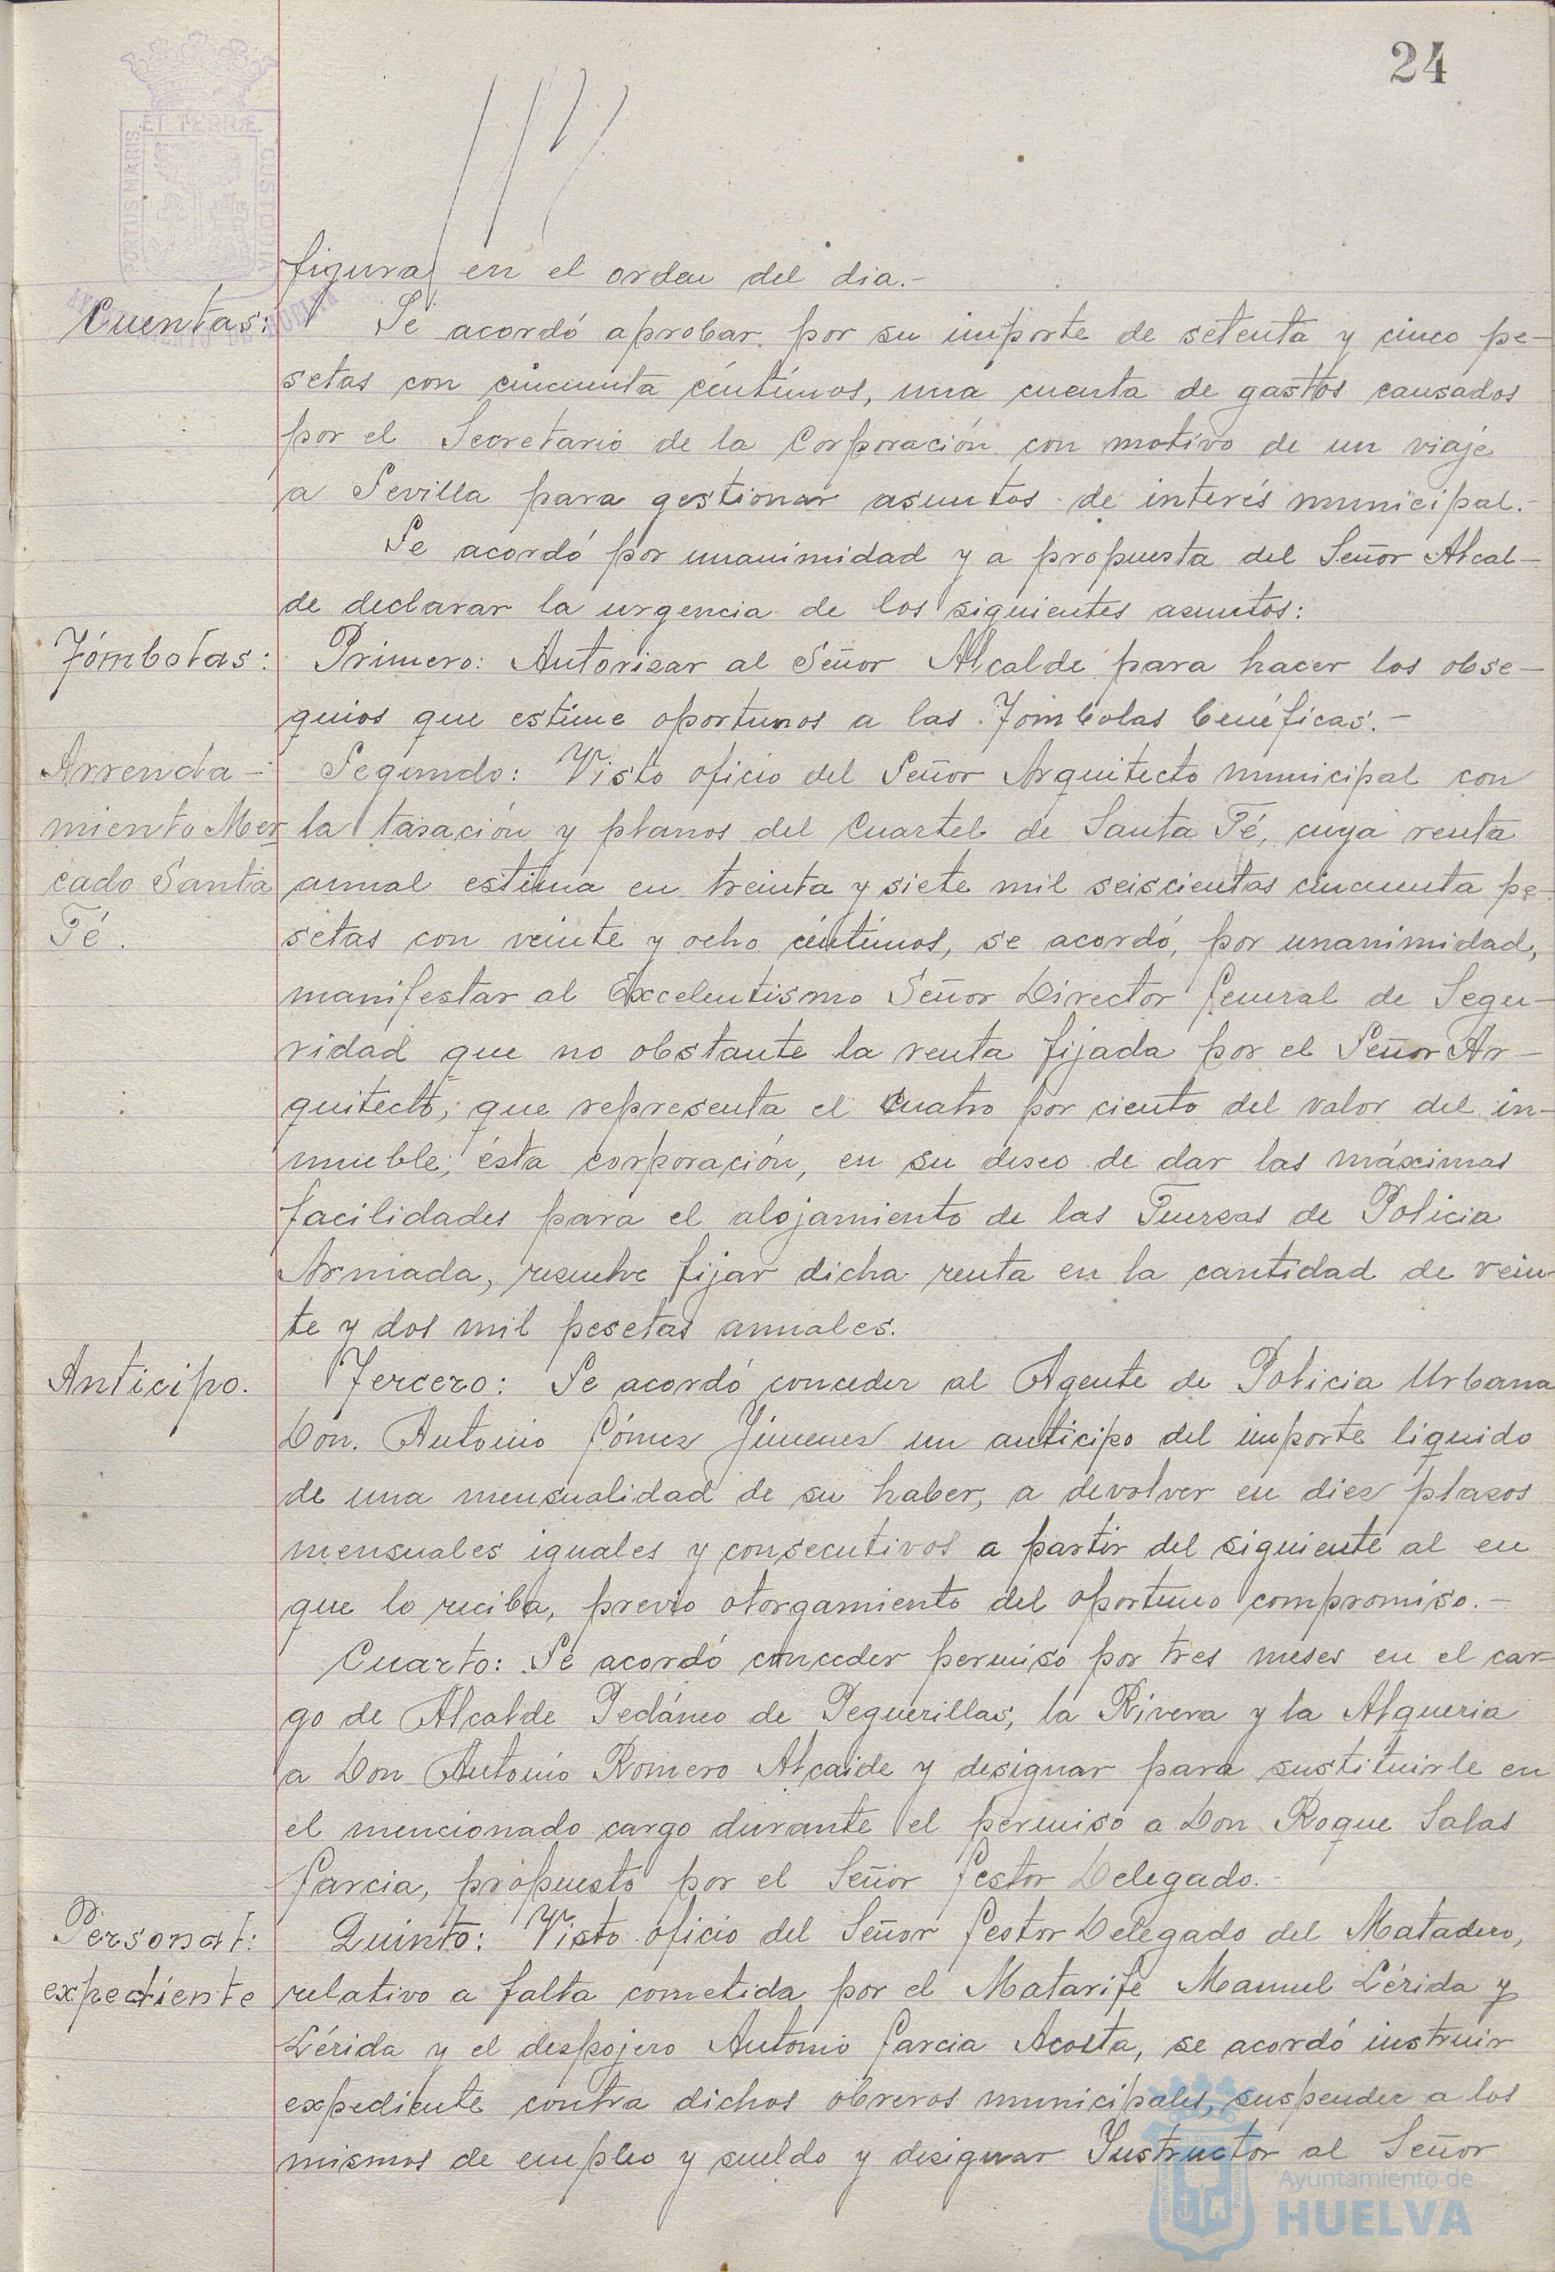 24
ET TERRÆ
PORTUS MARIS
CUSTODIA
figura en el orden del dia.-
Cuentas:
Se acordó aprobar por su importe de setenta y cinco pe-
setas con cincuenta céntimos, una cuenta de gastos causados
por el Secretario de la Corporación con motivo de un viaje
a Sevilla para gestionar asuntos de interés municipal.-
Se acordó por unanimidad y a propuesta del Señor Alcal-
de declarar la urgencia de los siguientes asuntos:
Tómbolas:
Primero: Autorizar al Señor Alcalde para hacer los obse-
quios que estime oportunos a las Tombolas benéficas.-
Arrenda-
miento Mer
cado Santa
Fé.
Segundo: Visto oficio del Señor Arquitecto municipal con
la tasación y planos del Cuartel de Santa Fé, cuya renta
annal estima en treinta y siete mil seiscientas cincuenta pe-
setas con veinte y ocho céntimos, se acordó, por unanimidad,
manifestar al Excelentismo Señor Director General de Segu-
ridad que no obstante la renta fijada por el Señor Ar-
quitecto, que representa el cuatro por ciento del valor del in-
mueble, ésta corporación, en su deseo de dar las máximas
facilidades para el alojamiento de las Fuerzas de Policia
Armada, resuelve fijar dicha renta en la cantidad de vein-
te y dos mil pesetas anuales.
Anticipo.
Tercero: Se acordó conceder al Agente de Policia Urbana
Don Antonio Gómez Jimenez un anticipo del importe liquido
de una mensualidad de su haber, a devolver en diez plazos
mensuales iguales y consecutivos a partir del siguiente al en
que lo reciba, previo otorgamiento del oportuno compromiso.-
Cuarto: Se acordó conceder permiso por tres meses en el car-
go de Alcalde Pedáneo de Peguerillas, la Rivera y la Alqueria
a Don Antonio Romero Alcaide y designar para sustituirle en
el mencionado cargo durante el permiso a Don Roque Salas
Garcia, propuesto por el Señor Gestor Delegado.-
Personal:
expediente
Quinto: Visto oficio del Señor Gestor Delegado del Matadero,
relativo a falta cometida por el Matarife Manuel Lérida y
Lérida y el despojero Antonio Garcia Acosta, se acordó instruir
expediente contra dichos obreros municipales, suspender a los
mismos de empleo y sueldo y designar Instructor al Señor
Ayuntamiento de
HUELVA